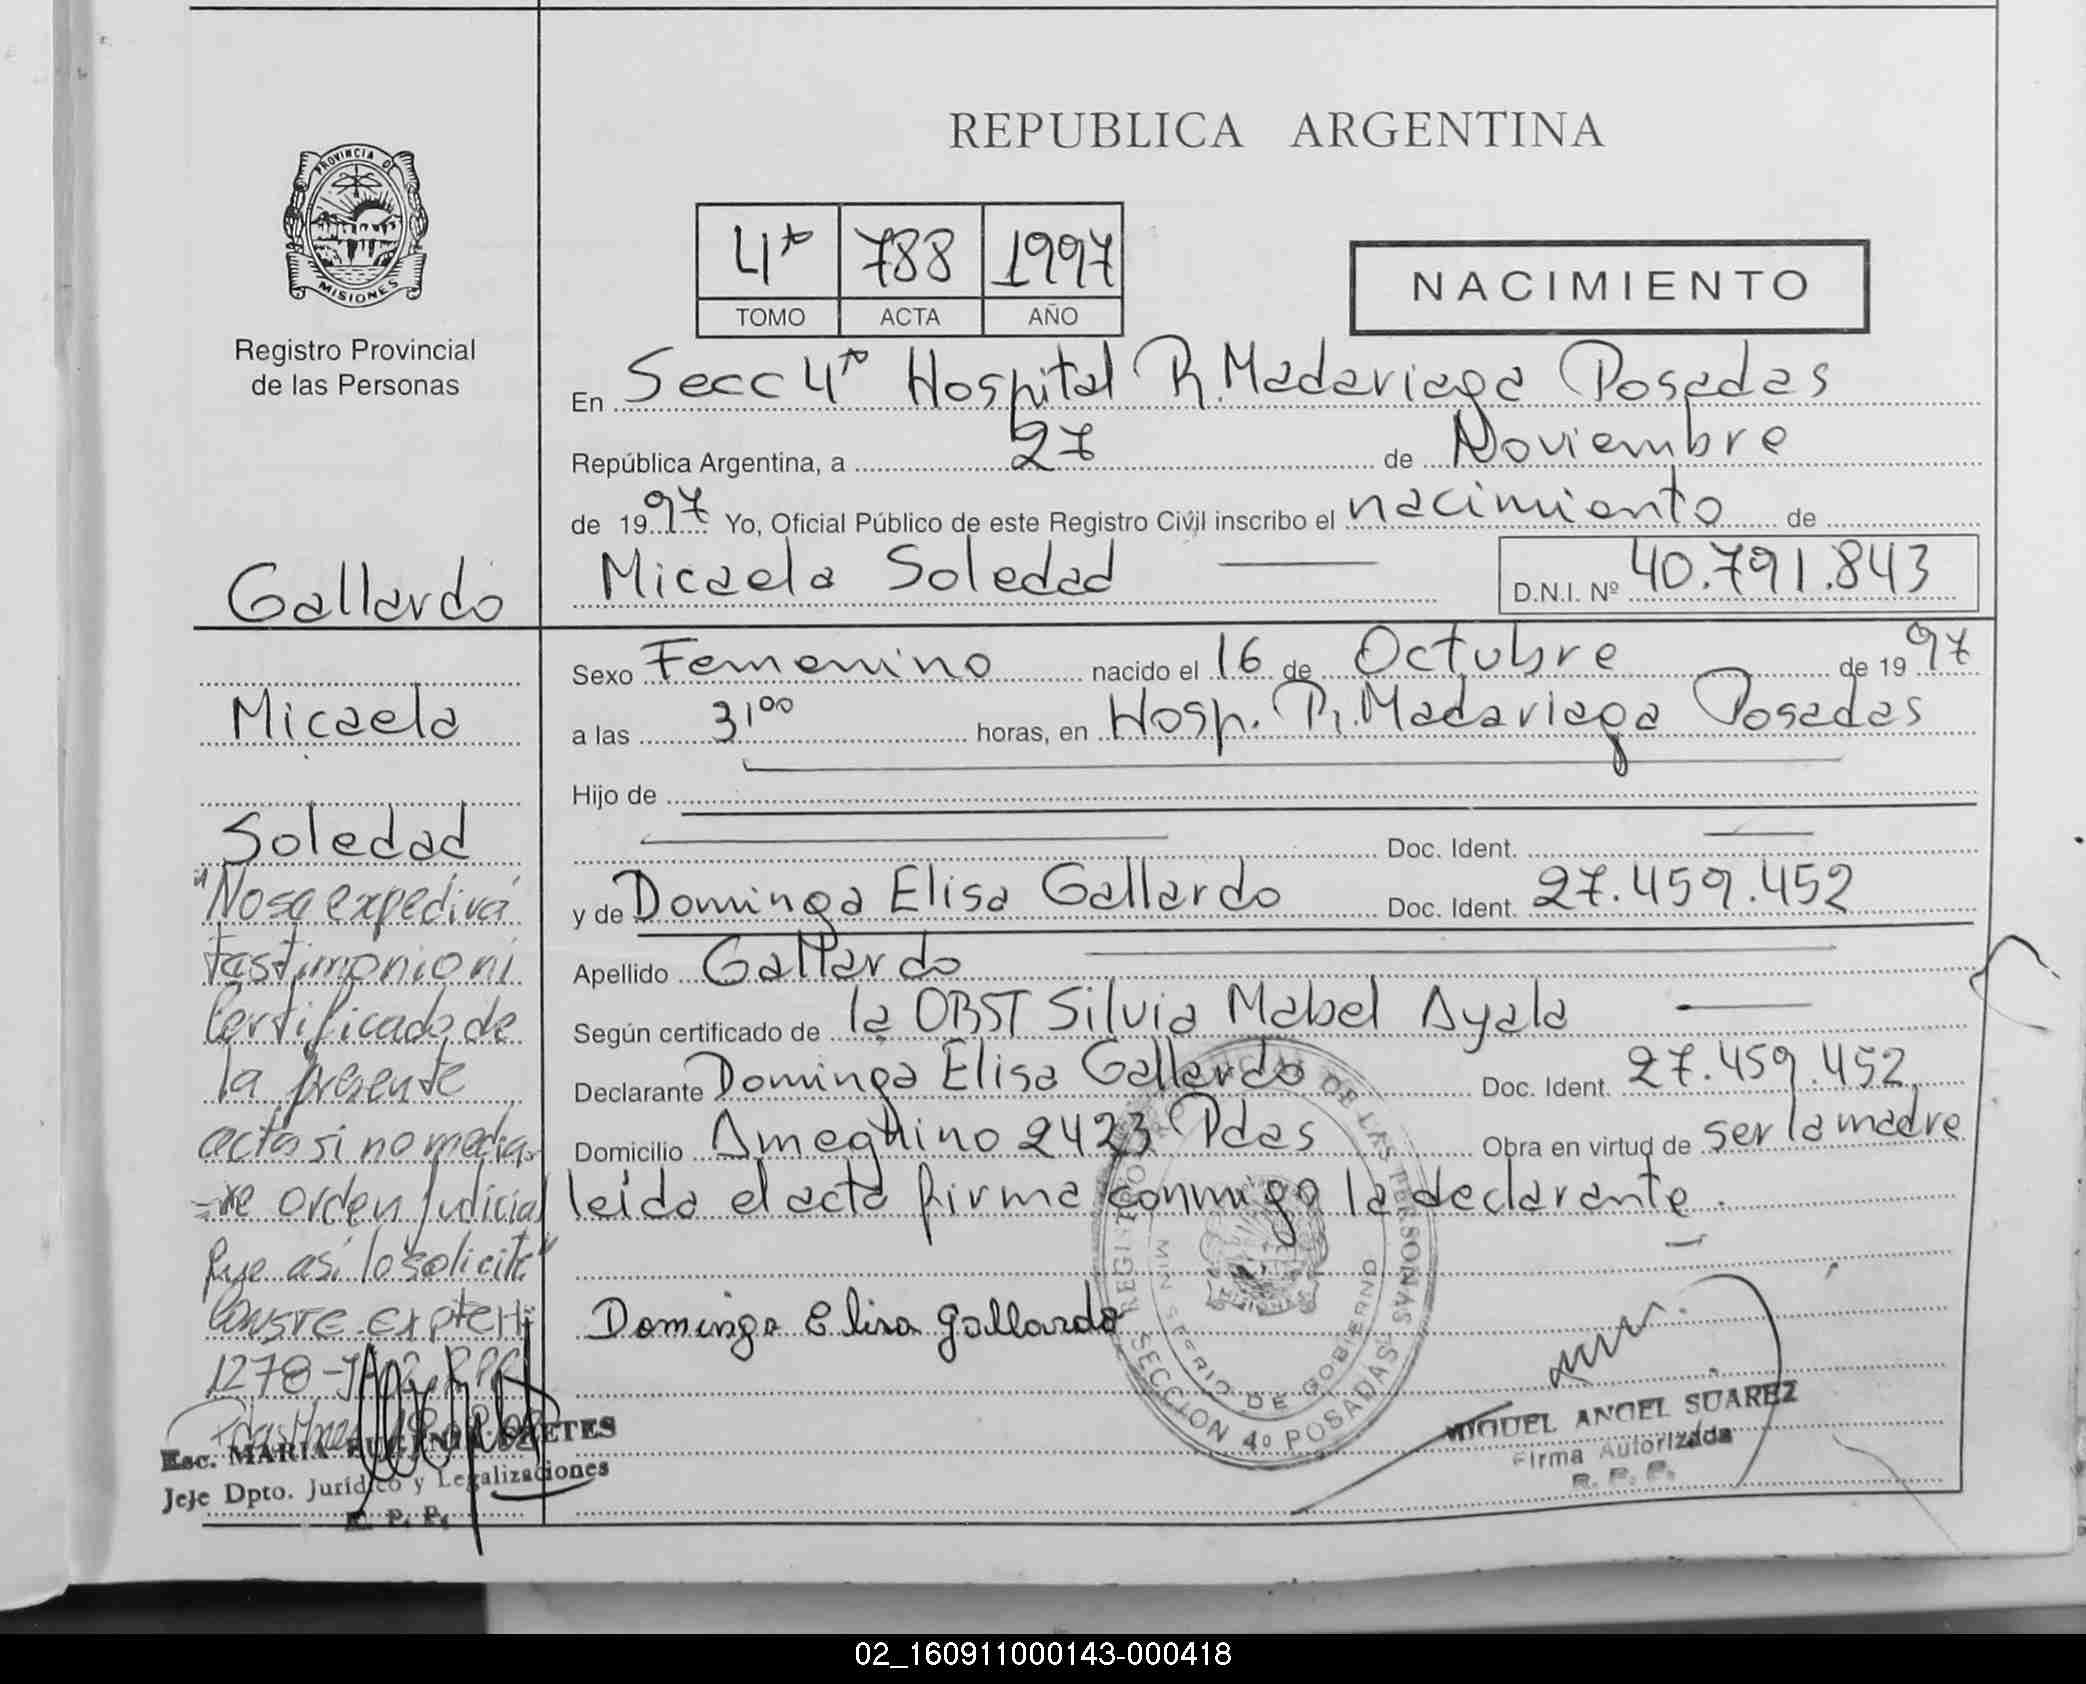 REPUBLICA ARGENTINA
PROVINCIA DE
MISIONES
Registro Provincial
de las Personas
4ta 788 1997
TOMO ACTA AÑO
NACIMIENTO
En Secc 4ta Hospital R. Madariaga Posadas
República Argentina, a 27 de Noviembre
de 1997 Yo, Oficial Público de este Registro Civil inscribo el nacimiento de
Micaela Soledad D.N.I. Nº 40.791.843
Sexo Femenino nacido el 16 de Octubre de 1997
a las 3,00 horas, en Hosp. R. Madariaga Posadas
Hijo de
Doc. Ident.
y de Dominga Elisa Gallardo Doc. Ident. 27.459.452
Apellido Gallardo
Según certificado de la OBST Silvia Mabel Ayala
Declarante Dominga Elisa Gallardo Doc. Ident. 27.459.452
Domicilio Ameghino 2423 Pdas Obra en virtud de ser la madre
leida el acta firma conmigo la declarante.
Dominga Elisa Gallardo
REGISTRO PROVINCIAL DE LAS PERSONAS
MINISTERIO DE GOBIERNO
SECCION 4º POSADAS
MIGUEL ANGEL SUAREZ
Firma Autorizada
R. P. P.
Gallardo
Micaela
Soledad
"No se expedirá
testimonio ni
Certificado de
la presente
acta si no media-
=re orden Judicial
que así lo solicite"
Conste. Expte
1278-
Esc. MARIA EUGENIA
Jefe Dpto. Jurídico y Legalizaciones
R. P. P.
02_160911000143-000418